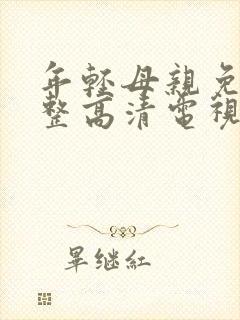 年輕母親免
整高清電視
畢继紅